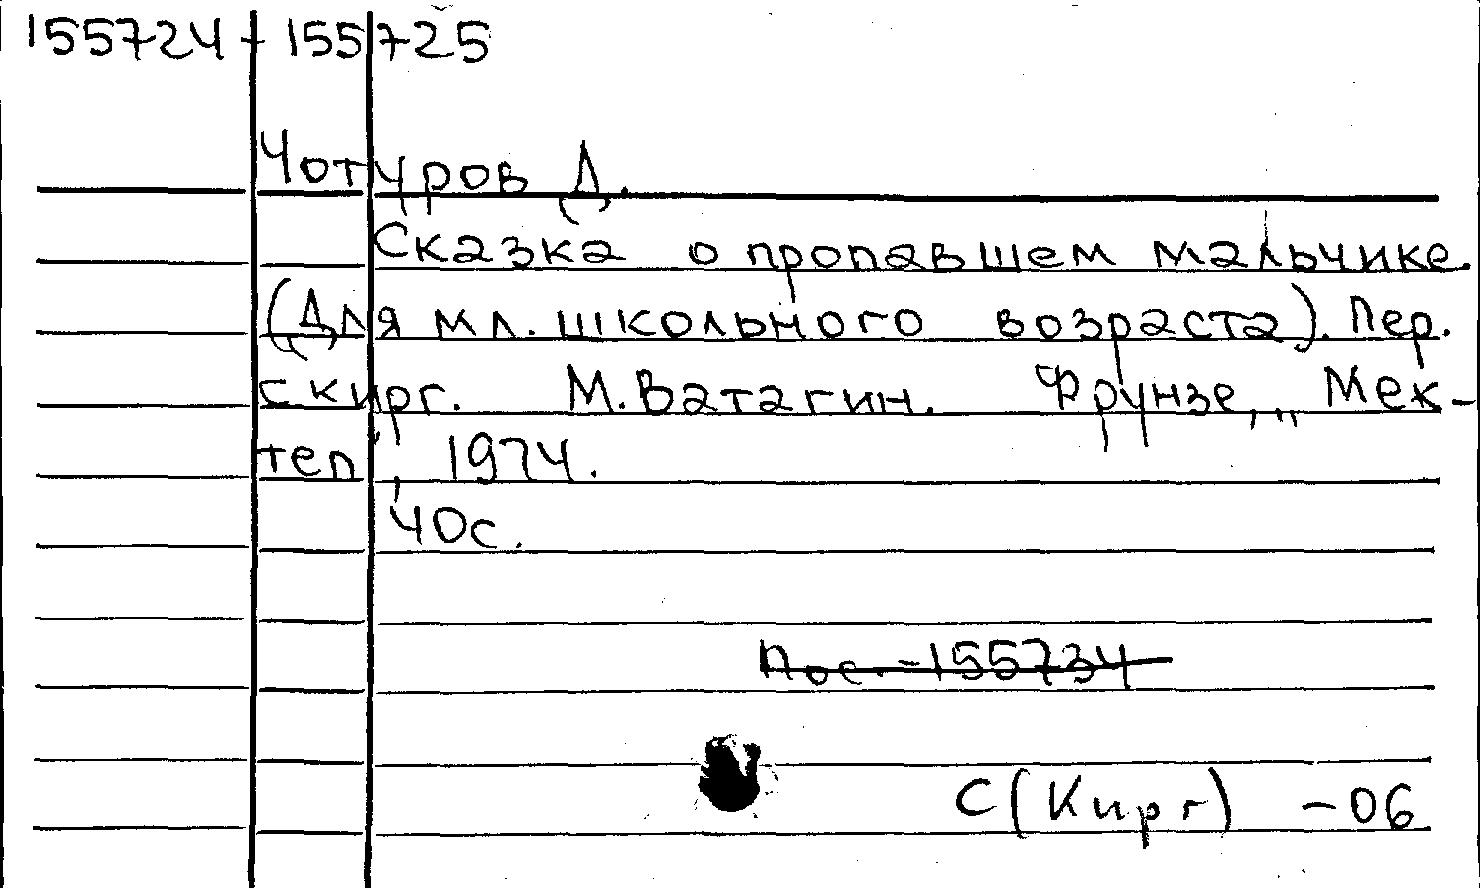 155724 - 155725
Чотуров Д.
Сказка о пропавшем мальчике.
(Для мл. школьного возраста). Пер.
с кирг. М. Ватагин. Фрунзе, „Мек-
теп", 1974.
40с.
Пос. - 155734
С(Кирг) - 06